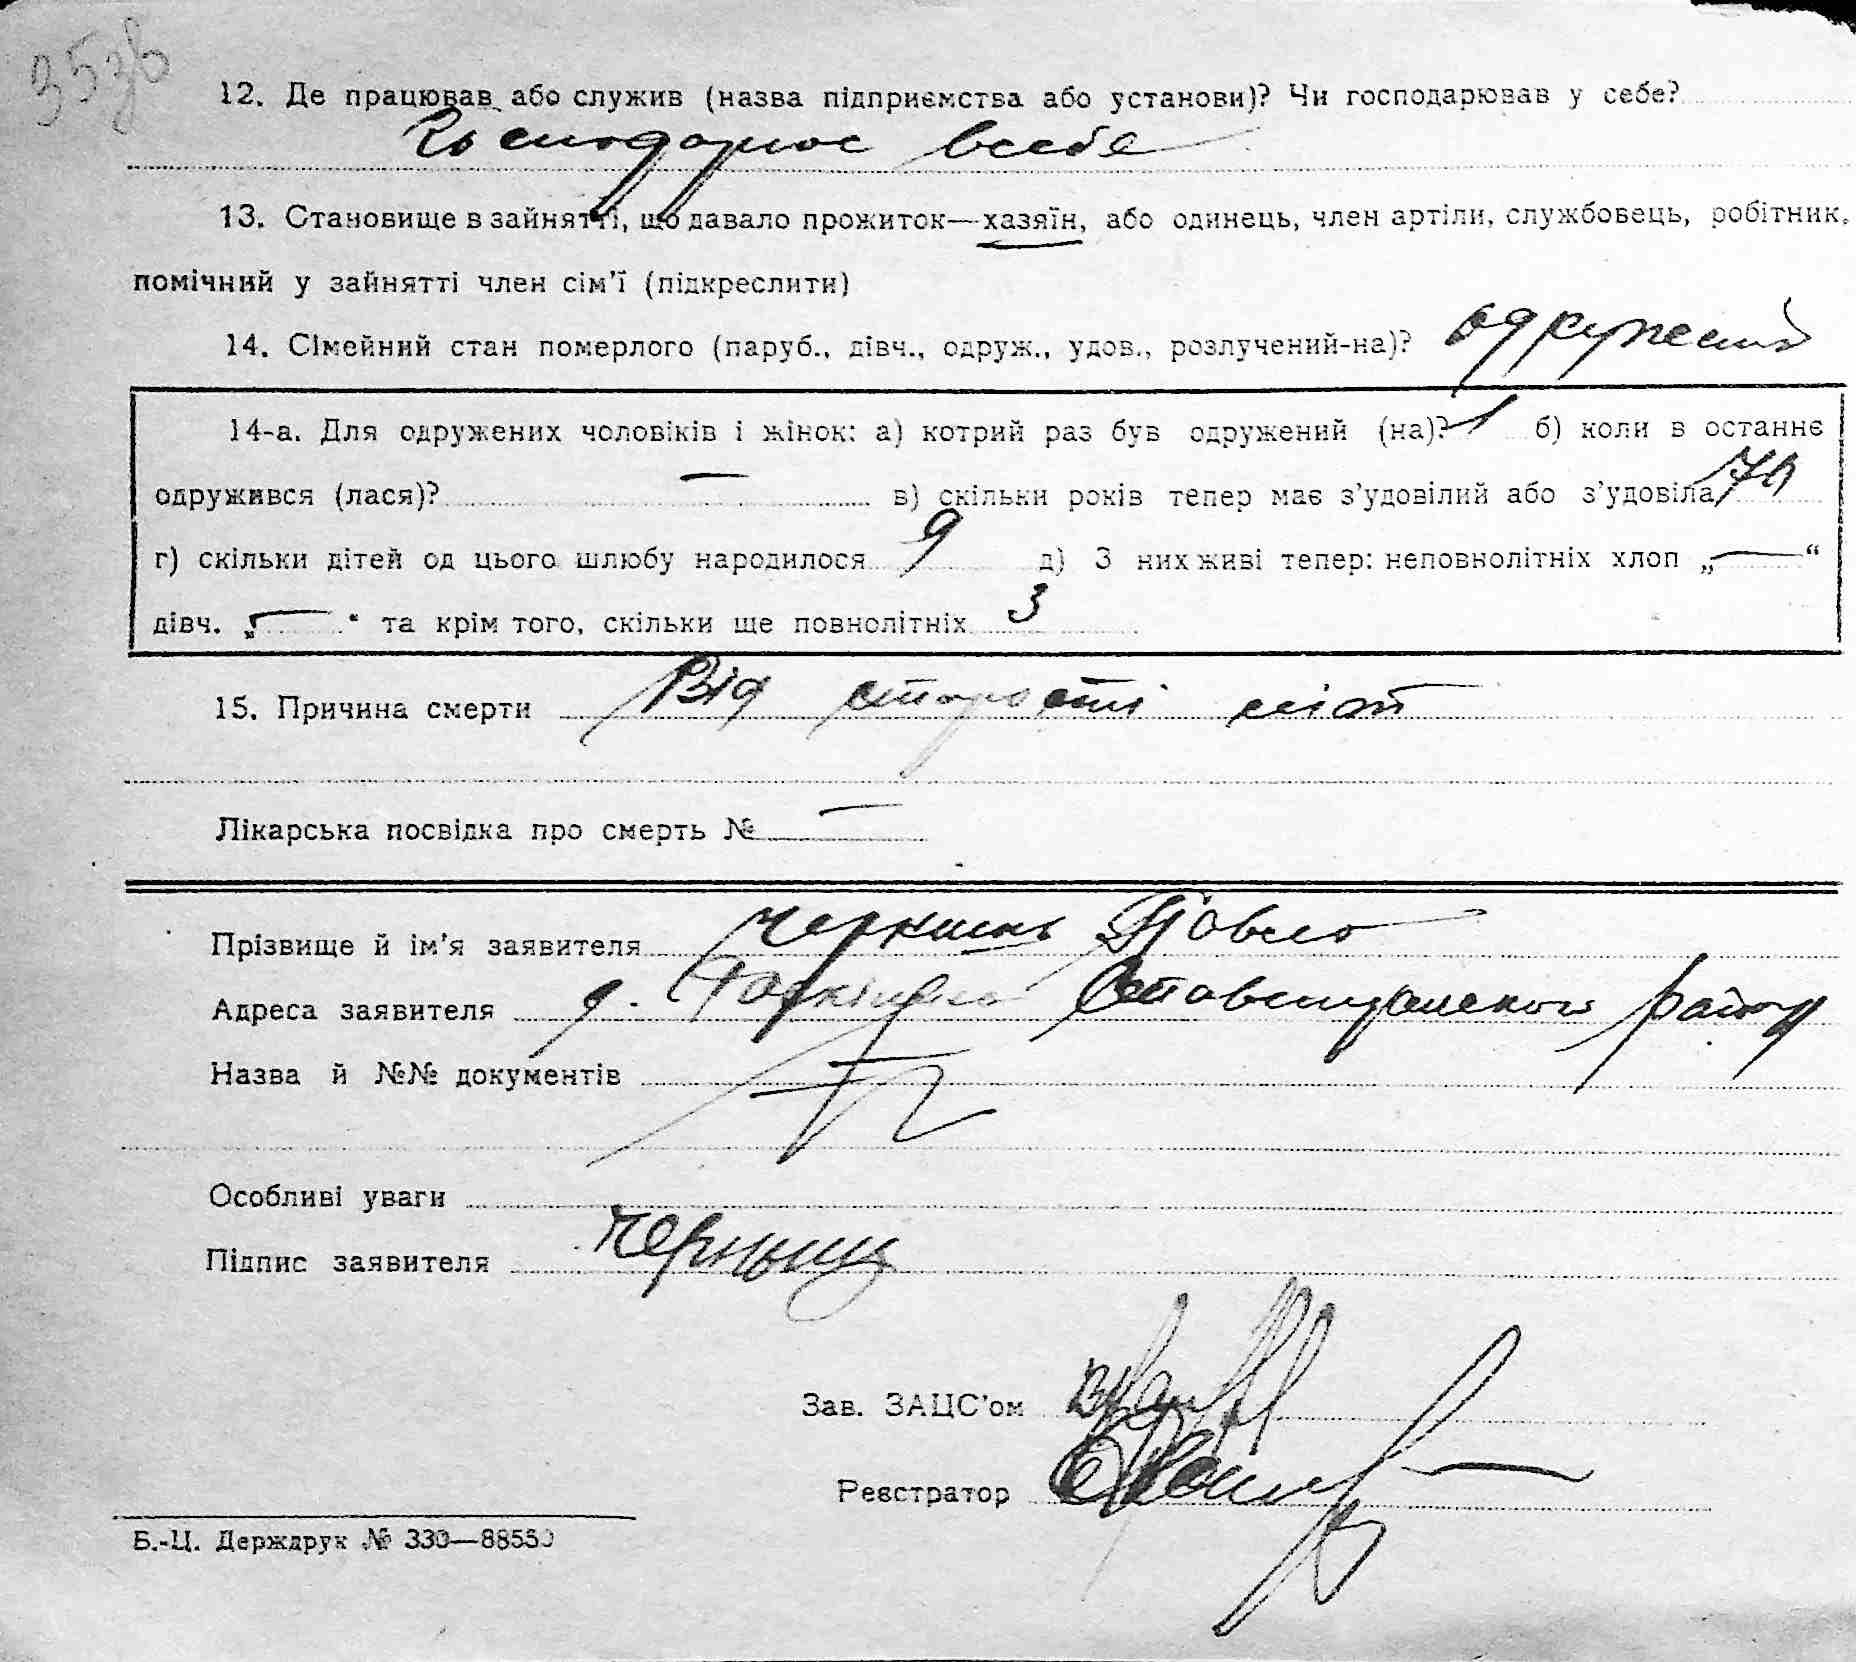 353в
12. Де працював або служив (назва підприємства або установи)? Чи господарював у себе?
Господарює всебе
13. Становище в зайнятті, що давало прожиток—хазяїн, або одинець, член артіли, службовець, робітник,
помічний у зайнятті член сім'ї (підкреслити)
14. Сімейний стан померлого (паруб., дівч., одруж., удов., розлучений-на)? одружений
14-а. Для одружених чоловіків і жінок: а) котрий раз був одружений (на)? 1 б) коли в останнє
одружився (лася)? — в) скільки років тепер має з'удовілий або з'удовіла 70
г) скільки дітей од цього шлюбу народилося 9 д) З них живі тепер: неповнолітніх хлоп „—“
дівч. „—“ та крім того, скільки ще повнолітніх 3
15. Причина смерти Від старости літ
Лікарська посвідка про смерть № —
Прізвище й ім'я заявителя Павло
Адреса заявителя с. Ставищанського району
Назва й №№ документів
Особливі уваги
Підпис заявителя
Зав. ЗАЦС'ом
Реєстратор
Б.-Ц. Держдрук № 330—88550